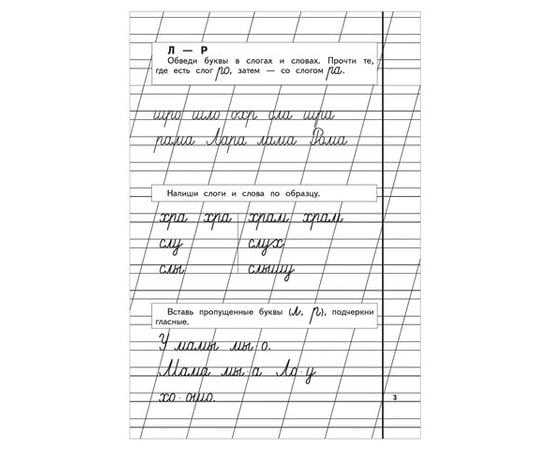 Л — Р
Обведи буквы в слогах и словах. Прочти те,
где есть слог ро, затем — со слогом ра.
шро шло охр сла шра
рама Лара лама Рома
Напиши слоги и слова по образцу.
хра хра храм храм
слу слух
слы слышу
Вставь пропущенные буквы (л, р), подчеркни
гласные.
У мамы мы о.
Мама мы а Ла у
хо ошо.
3